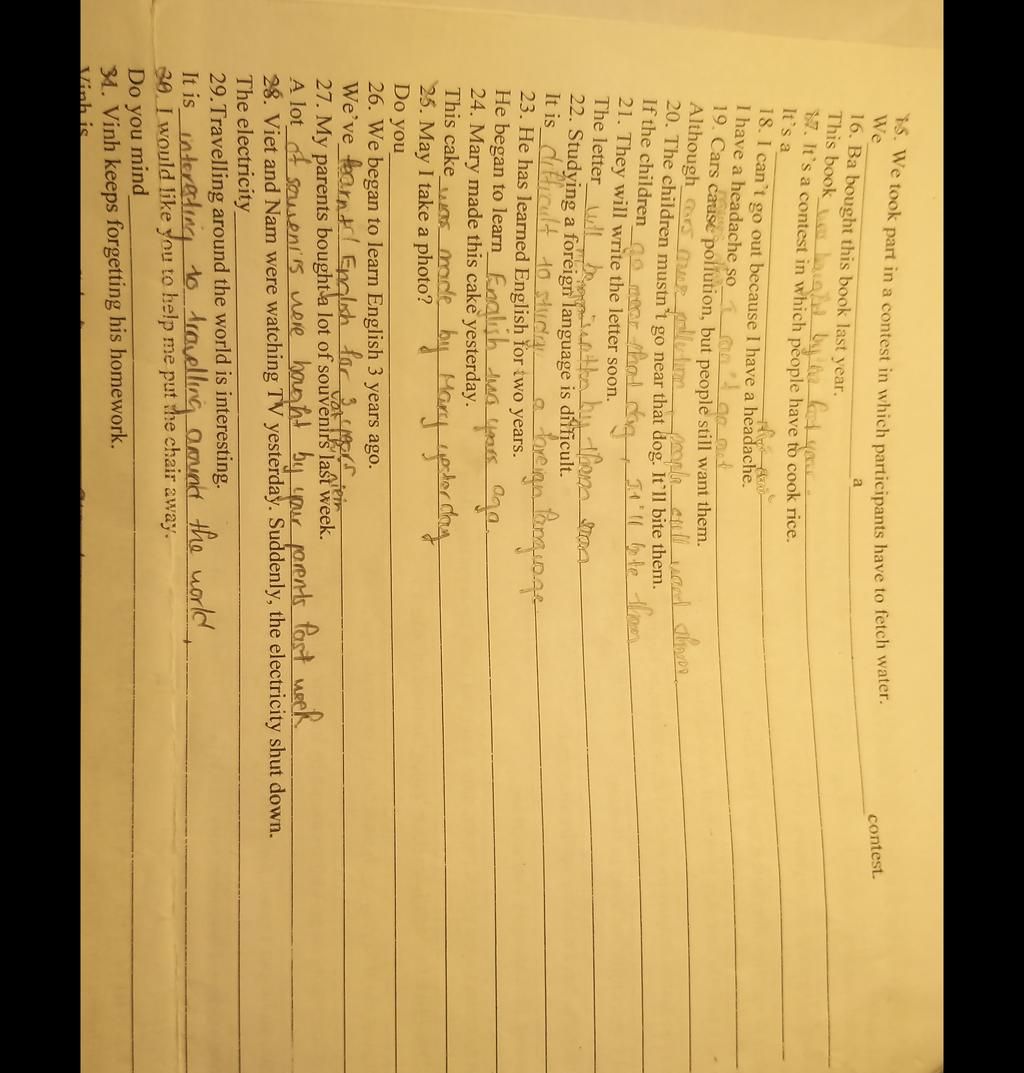 15. We took part in a contest in which participants have to fetch water.
We ____________ a ____________ contest.
16. Ba bought this book last year.
This book was bought by Ba last year.
17. It's a contest in which people have to cook rice.
It's a
18. I can't go out because I have a headache.
I have a headache so I can't go out
19. Cars cause pollution, but people still want them.
Although cars cause pollution, people still want them
20. The children mustn't go near that dog. It'll bite them.
If the children go near that dog, It'll bite them
21. They will write the letter soon.
The letter will be written by them soon
22. Studying a foreign language is difficult.
It is difficult to study a foreign language
23. He has learned English for two years.
He began to learn English two years ago.
24. Mary made this cake yesterday.
This cake was made by Mary yesterday
25. May I take a photo?
Do you
26. We began to learn English 3 years ago.
We've learnt English for 3 years
27. My parents bought a lot of souvenirs last week.
A lot of souvenirs were bought by your parents last week
28. Viet and Nam were watching TV yesterday. Suddenly, the electricity shut down.
The electricity
29. Travelling around the world is interesting.
It is interesting to travelling around the world.
30. I would like you to help me put the chair away.
Do you mind
31. Vinh keeps forgetting his homework.
Vinh is